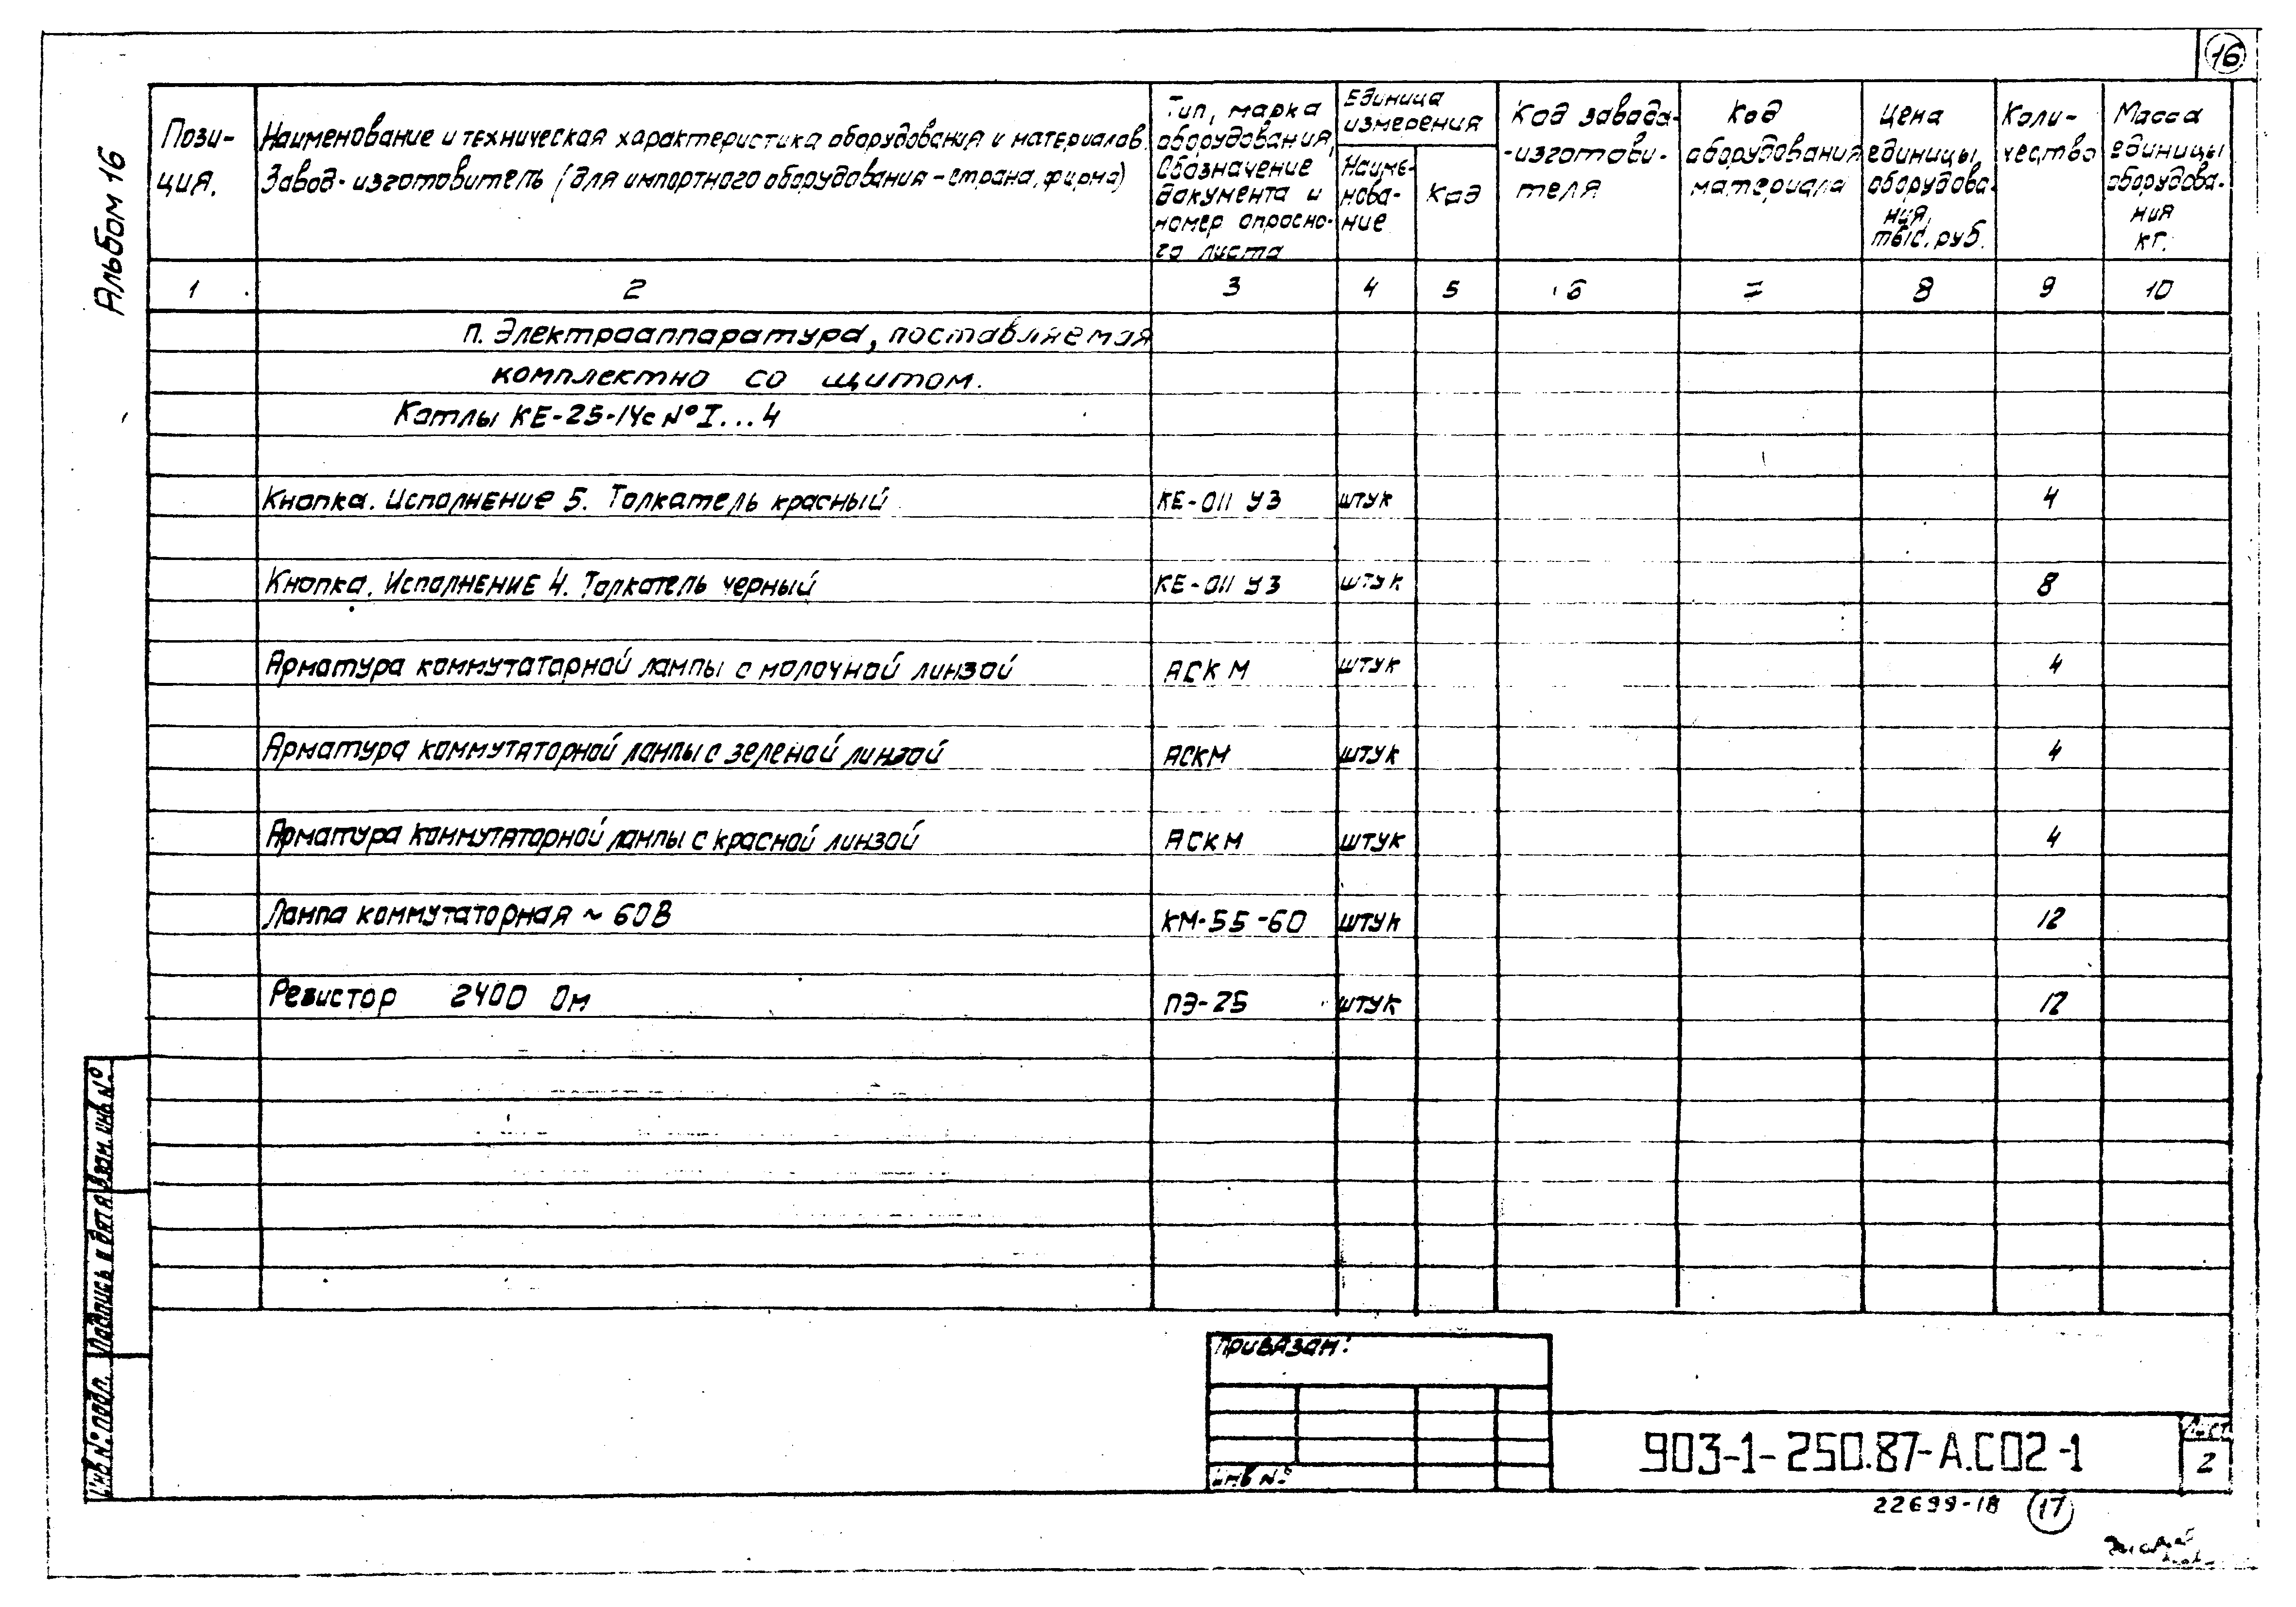 16
Альбом 16
Пози-
ция.
Наименование и техническая характеристика оборудования и материалов.
Завод-изготовитель (для импортного оборудования - страна, фирма)
Тип, марка
оборудования,
Обозначение
документа и
номер опросно-
го листа
Единица
измерения
Наиме-
нова-
ние
Код
Код завода-
-изготови-
теля
Код
оборудования
материала
Цена
единицы
оборудова-
ния,
тыс. руб.
Коли-
чество
Масса
единицы
оборудова-
ния
кг.
1 2 3 4 5 6 7 8 9 10
п. Электроаппаратура, поставляемая
комплектно со щитом.
Котлы КЕ-25-14с №I...4
Кнопка. Исполнение 5. Толкатель красный КЕ-011 У3 штук 4
Кнопка. Исполнение 4. Толкатель черный КЕ-011 У3 штук 8
Арматура коммутаторной лампы с молочной линзой АСКМ штук 4
Арматура коммутаторной лампы с зеленой линзой АСКМ штук 4
Арматура коммутаторной лампы с красной линзой АСКМ штук 4
Лампа коммутаторная ~ 60В КМ-55-60 штук 12
Резистор 2400 Ом ПЭ-25 штук 12
Взам. инв. №
Подпись и дата
Инв. № подл.
Привязан:
Инв №
903-1-250.87-А.СО2-1
Лист
2
22699-18 17